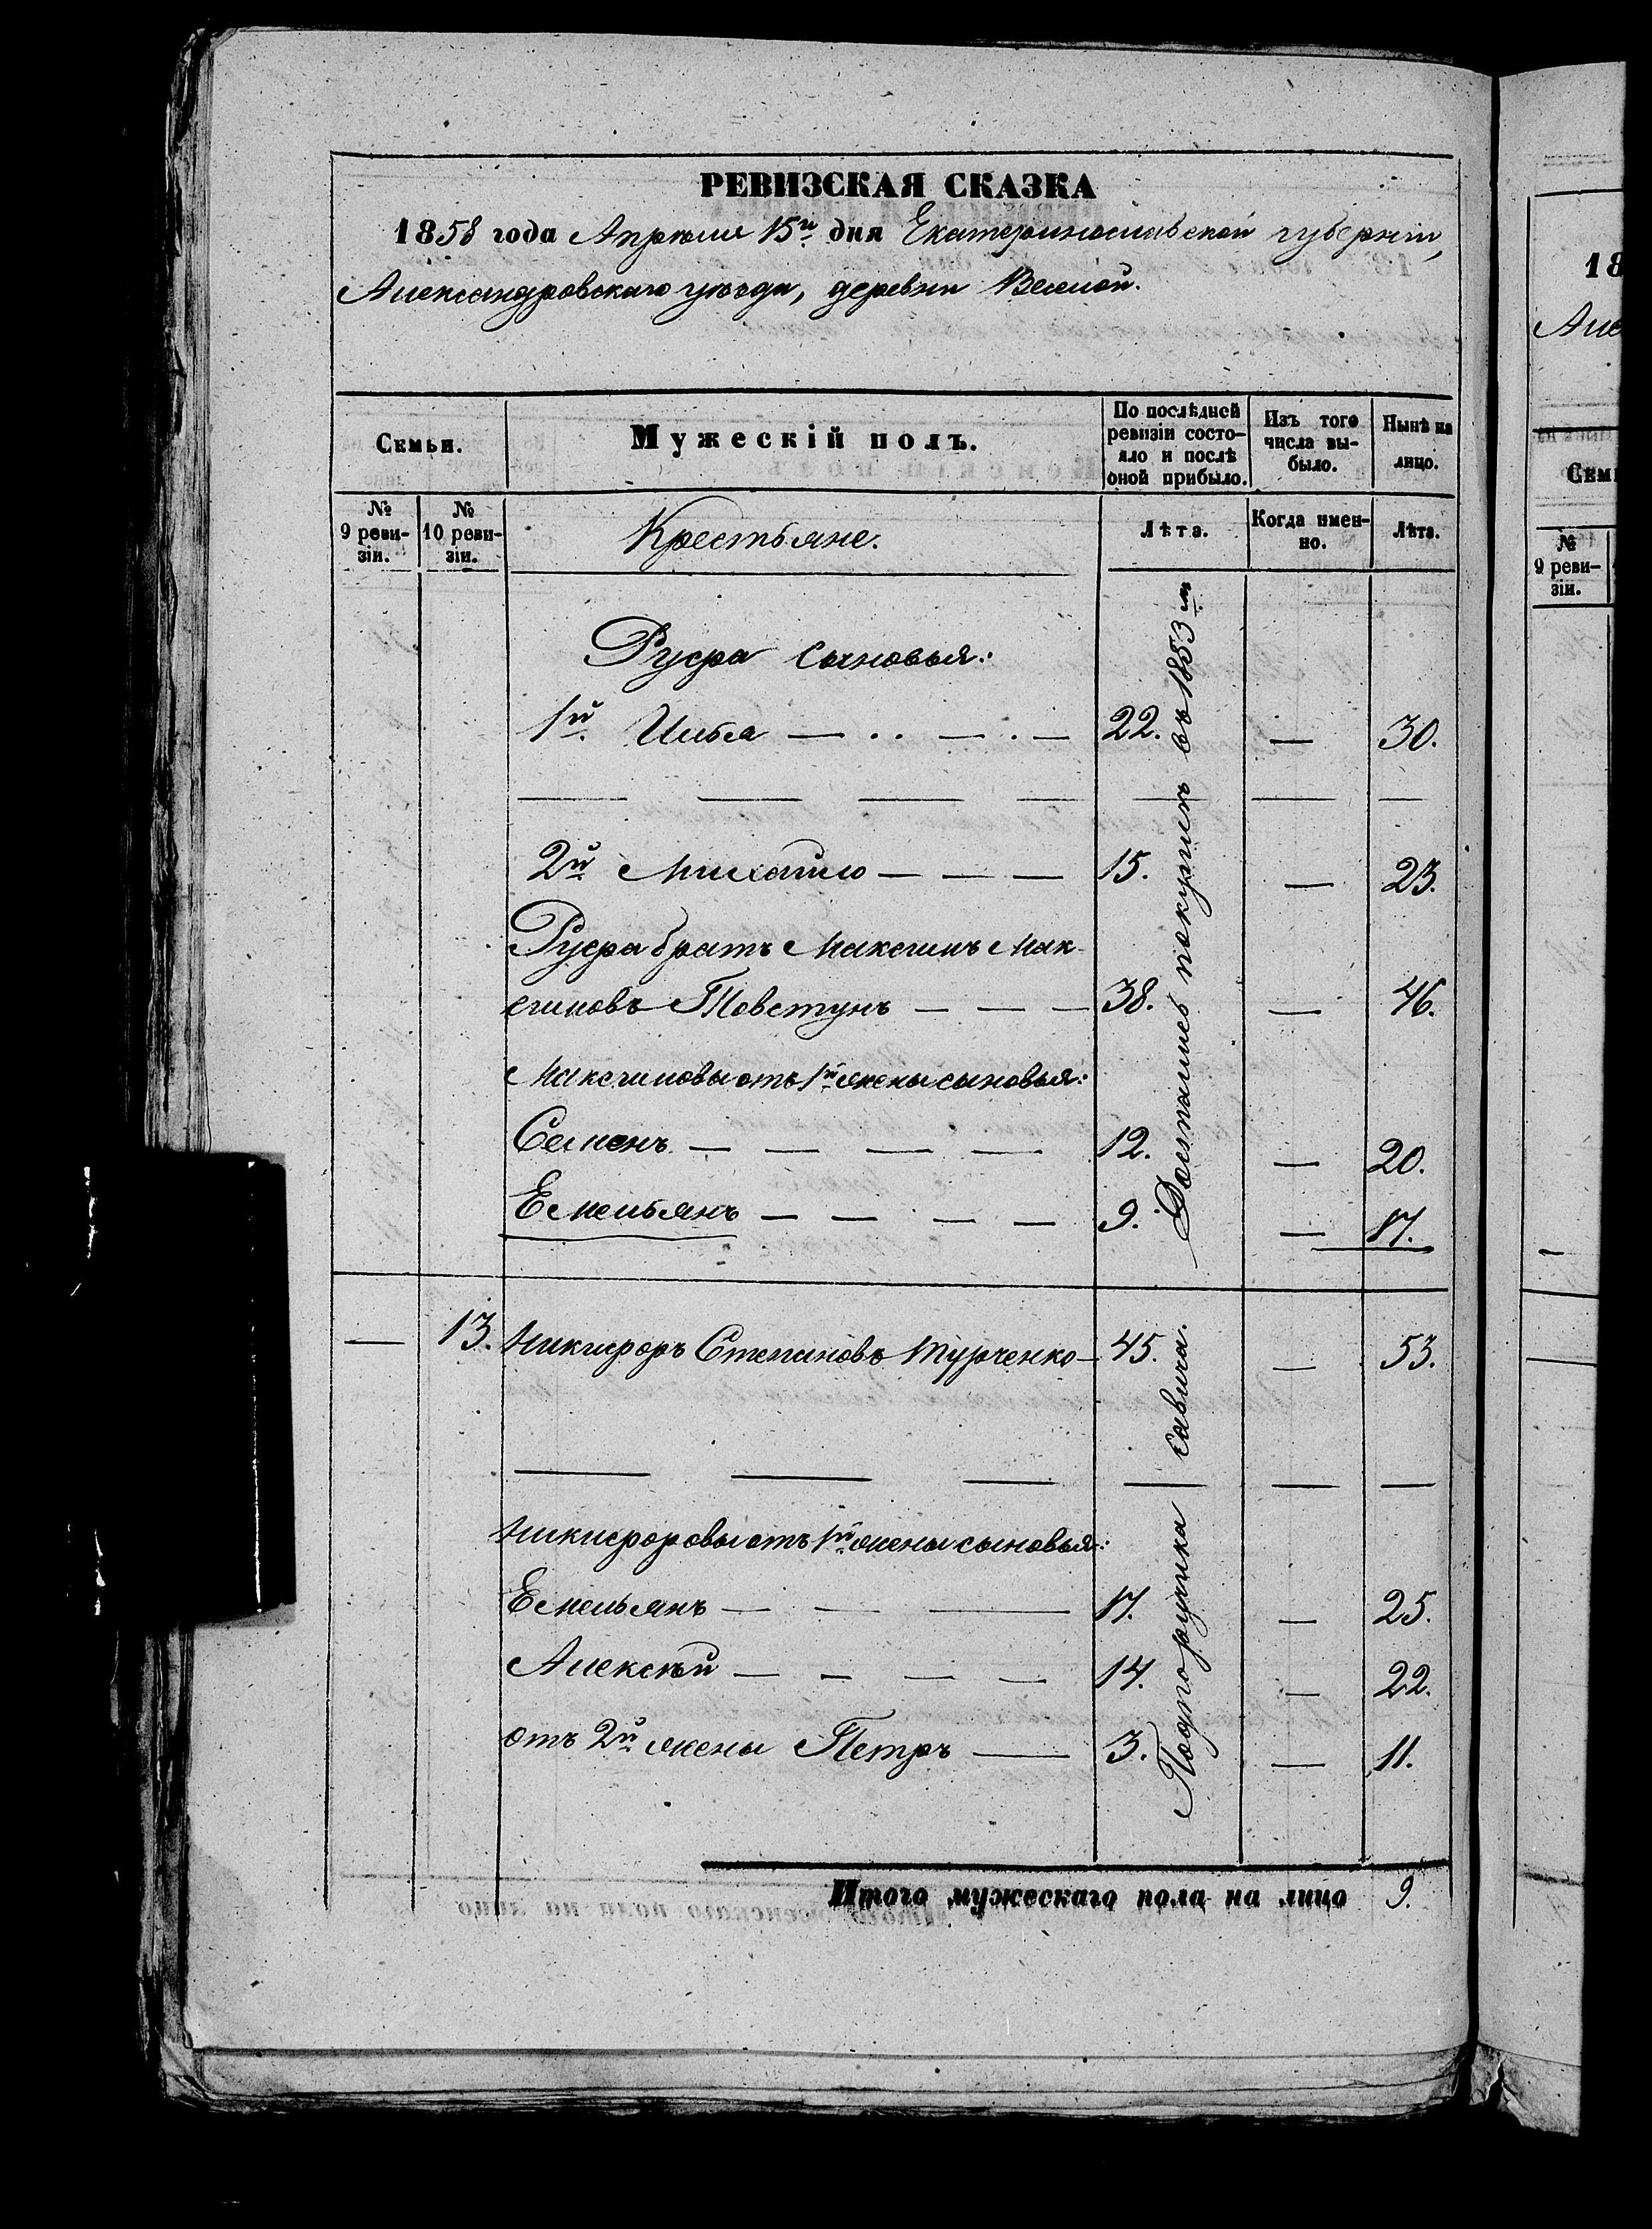 РЕВИЗСКАЯ СКАЗКА
1858 года Апрѣля 15го дня Екатеринославской губерніи,
Александровскаго уѣзда, деревни Веселой.
Семьи.
Мужескій полъ.
По послѣдней ревизіи состояло и послѣ оной прибыло.
Изъ того числа выбыло.
Нынѣ на лицо.
№ 9 ревизіи.
№ 10 ревизіи.
Крестьяне.
Лѣта.
Когда именно.
Лѣта.
Руфа сыновья:
1й Илья 22. — 30.
2й Михайло 15. — 23.
Руфа братъ Максимъ Мак-
симовъ Товстунъ 38. — 46.
Максимовы отъ 1й жены сыновья:
Семенъ 12. — 20.
Емельянъ 9. — 17.
Достались покупкѣ въ 1853 м
— 13. Никифоръ Степановъ Турченко 45. — 53.
Никифоровы отъ 1й жены сыновья:
Емельянъ 17. — 25.
Алексѣй 14. — 22.
отъ 2й жены Петръ 3. — 11.
Подпоручика Савича.
Итого мужескаго пола на лицо 9.
18
Але
Сем
№ 9 ревизіи.